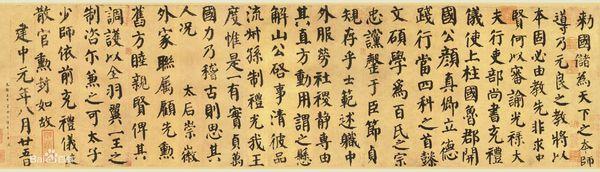 勅國儲為天下之本師
導乃元良之教將以
本固必由教先非求忠
賢何以審諭光祿大
夫行吏部尚書充禮
儀使上柱國魯郡開
國公顏真卿立德
踐行當四科之首懿
文碩學為百氏之宗
忠讜罄于臣節貞
規存乎士範述職中
外服勞社稷靜專由
其直方動用謂之懸
解山公啟事清彼品
流叔孫制禮光我王
度惟是一有實貞萬
國力乃稽古則思其
人況 太后崇徽
外家聯屬顧先勳
舊方睦親賢俾其
調護以全羽翼一王之
制咨爾兼之可太子
少師依前充禮儀使
散官勳封如故
建中元年八月廿五日
Bai百科